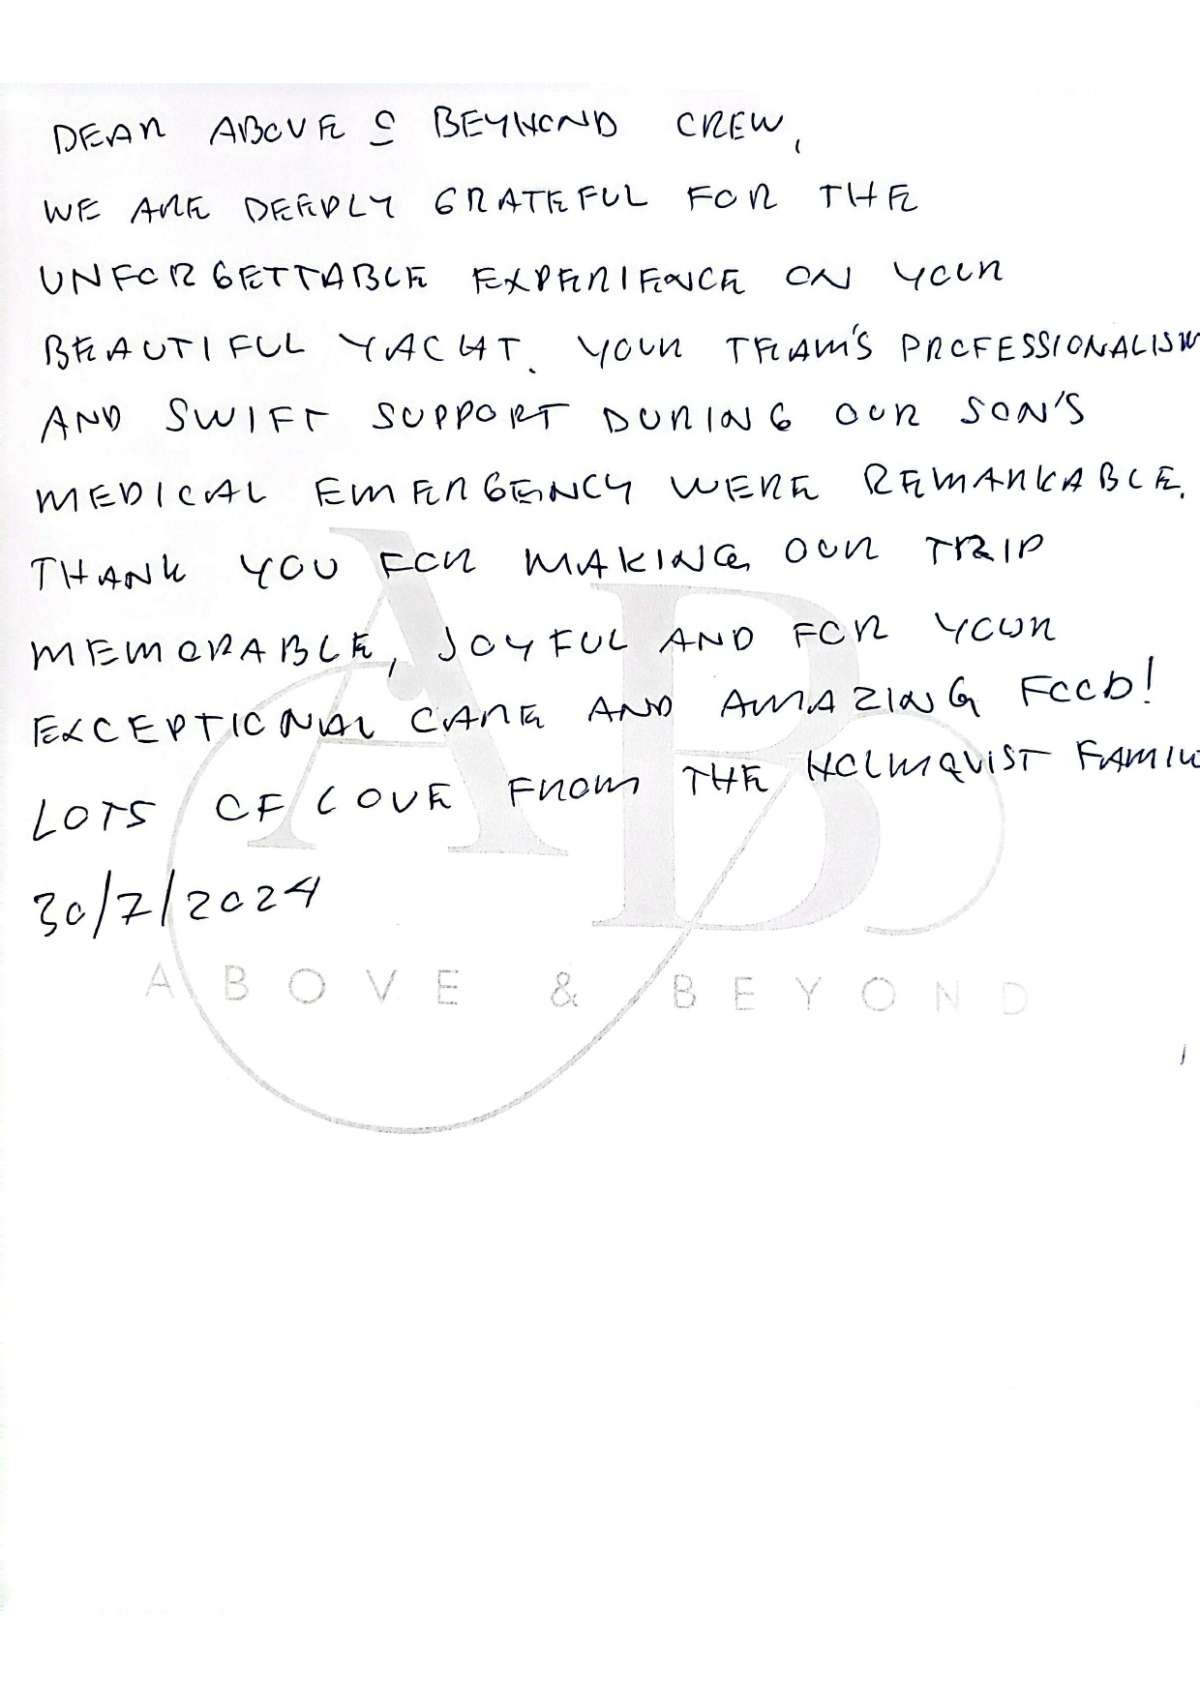 DEAR ABOVE & BEYHOND CREW,
WE ARE DEEPLY GRATEFUL FOR THE
UNFORGETTABLE EXPERIENCE ON YOUR
BEAUTIFUL YACHT. YOUR TEAM'S PROFESSIONALISM
AND SWIFT SUPPORT DURING OUR SON'S
MEDICAL EMERGENCY WERE REMARKABLE.
THANK YOU FOR MAKING OUR TRIP
MEMORABLE, JOYFUL AND FOR YOUR
EXCEPTIONAL CARE AND AMAZING FOOD!
LOTS OF LOVE FROM THE HOLMQVIST FAMILY
30/7/2024
AB
ABOVE & BEYOND